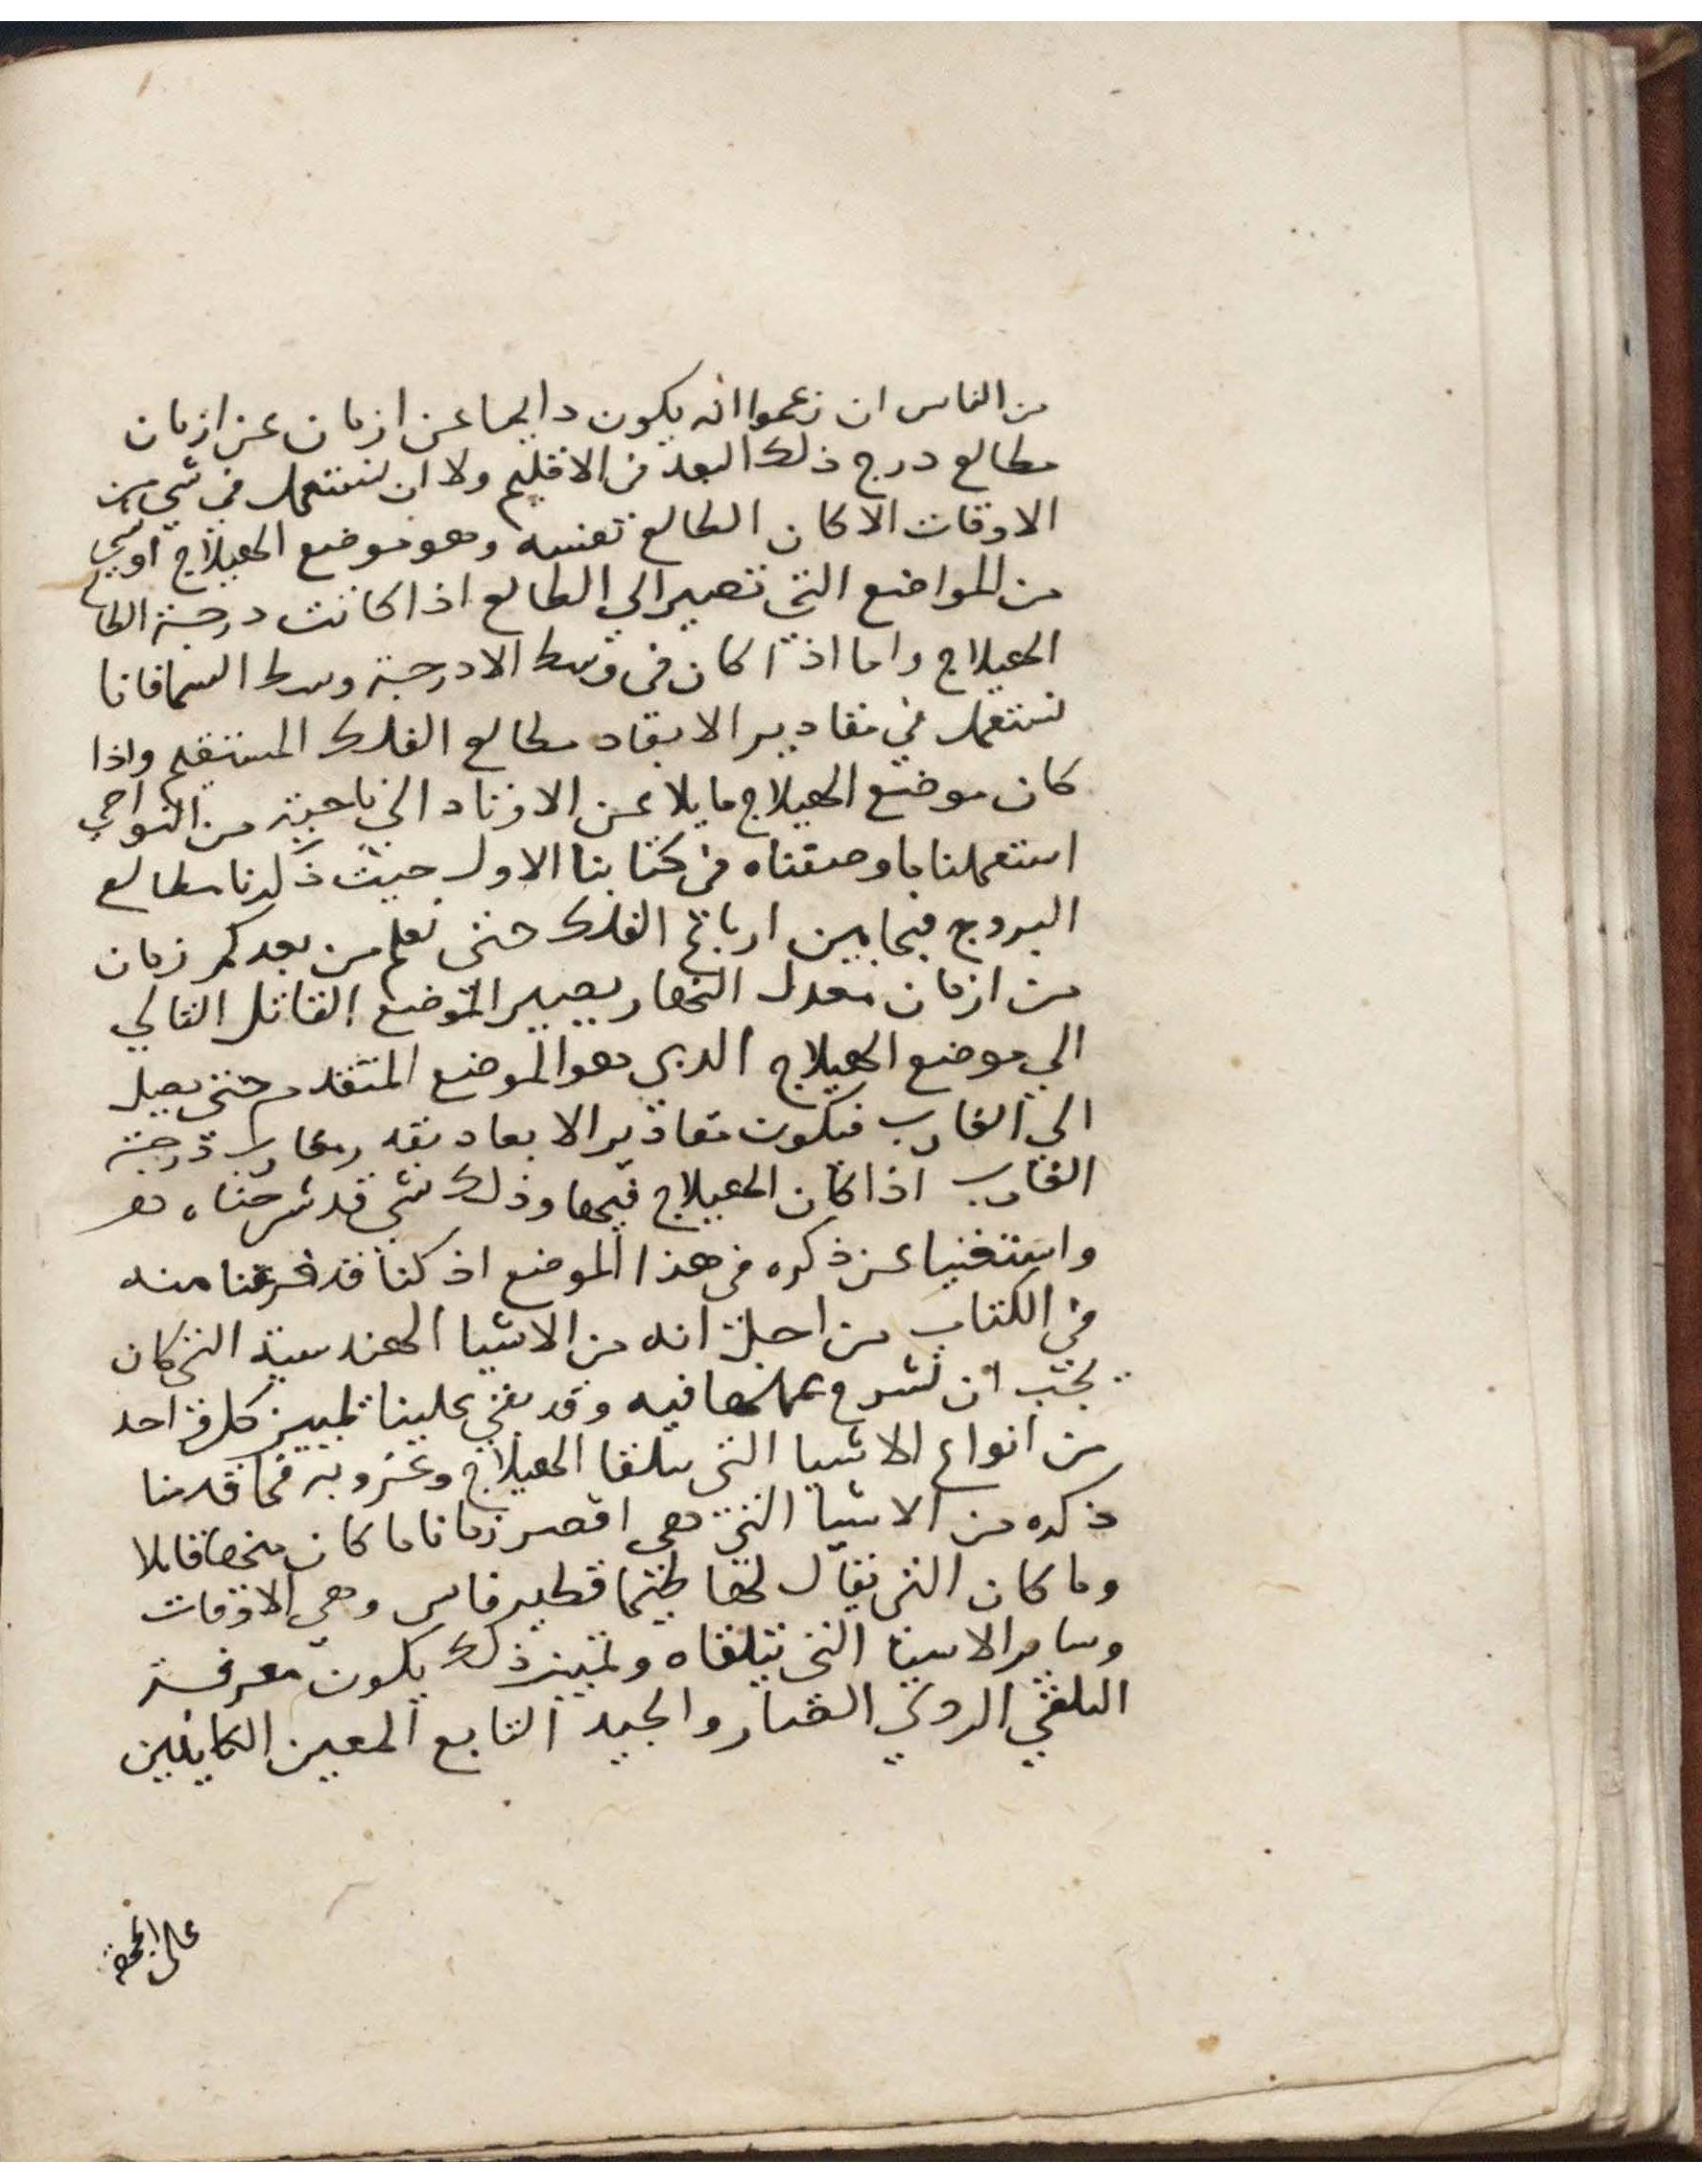 من الناس ان زعموا انه يكون دايما عن ازمان عن ازمان
مطالع درج ذلك البعد في الاقليم ولا ان نستعمل في شي من
الاوقات الا كان الطالع نفسه وهو موضع الهيلاج او شي
من المواضع التي تصير الي الطالع اذا كانت درجة الطالع
الهيلاج واما اذا كان في وسط الا درجة وسط السما فانا
نستعمل في مقادير الابعاد مطالع الفلك المستقيم واذا
كان موضع الهيلاج مايلا عن الاوتاد الي ناحية من النواحي
استعملنا ما وصفناه في كتابنا الاول حيث ذكرنا مطالع
البروج فيما بين ارباع الفلك حتي نعلم من بعد كم زمان
من ازمان معدل النهار يصير الموضع القاتل التالي
الي موضع الهيلاج الذي هو الموضع المتقدم حتي يصل
الي الغارب فتكون مقادير الابعاد بقدر مغارب درجة
الغارب اذا كان الهيلاج فيها وذلك شي قد شرحناه
واستغنينا عن ذكره في هذا الموضع اذ كنا قد فرغنا منه
في الكتاب من اجل انه من الاشيا الهندسية التي كان
يجب ان نشرح عملها فيه وقد بقي علينا تمييز كل واحد
من انواع الاشيا التي يتلقا الهيلاج وغروبه فما قدمنا
ذكره من الاشيا التي هي اقصر زمانا ما كان منها قاتلا
وما كان التي يقال لها قليمقطيرقاس وهي الاوقات
وساير الاشيا التي تتلقاه وتمييز ذلك يكون معرفة
التلقي الردي الضار والجيد النافع المعين الكاينين
علي الجهة